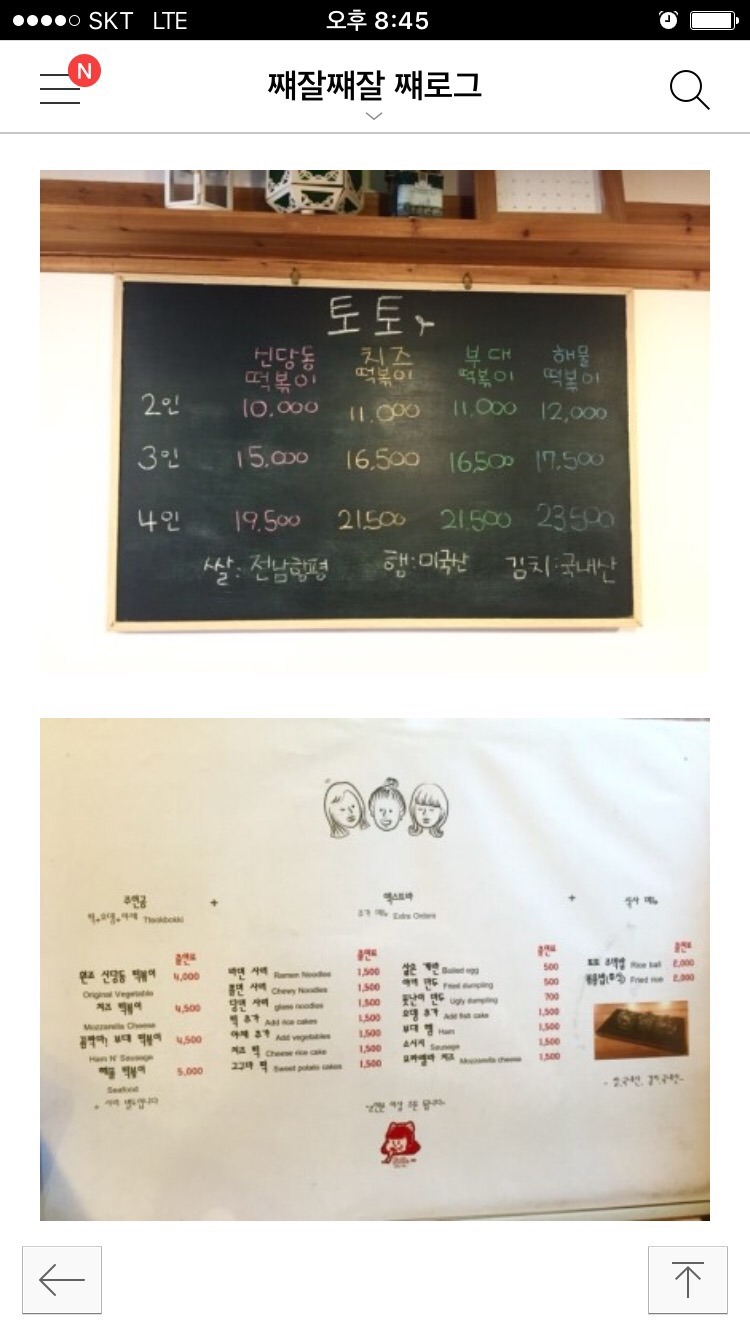 SKT LTE 오후 8:45
N
쨰잘쨰잘 쨰로그
토토
신당동 떡볶이 치즈 떡볶이 부대 떡볶이 해물 떡볶이
2인 10,000 11,000 11,000 12,000
3인 15,000 16,500 16,500 17,500
4인 19,500 21,500 21,500 23,500
쌀: 전남함평 햄:미국산 김치:국내산
주연공 + 엑스트라 + 식사 메뉴
떡+오뎅+야채 Tteokbokki 추가 메뉴 Extra Orders
출연료 출연료 출연료 출연료
원조 신당동 떡볶이 4,000
Original Vegetable
치즈 떡볶이 4,500
Mozzarella Cheese
꼼짝마! 부대 떡볶이 4,500
Ham N' Sausage
해물 떡볶이 5,000
Seafood
* 사리 별도입니다
라면 사리 Ramen Noodles 1,500
쫄면 사리 Chewy Noodles 1,500
당면 사리 glass noodles 1,500
떡 추가 Add rice cakes 1,500
야채 추가 Add vegetables 1,500
치즈 떡 Cheese rice cake 1,500
고구마 떡 Sweet potato cakes 1,500
삶은 계란 Boiled egg 500
야끼 만두 Fried dumpling 500
못난이 만두 Ugly dumpling 700
오뎅 추가 Add fish cake 1,500
부대 햄 Ham 1,500
소시지 Sausage 1,500
모짜렐라 치즈 Mozzarella cheese 1,500
토토 주먹밥 Rice ball 2,000
볶음밥(후식) Fried rice 2,000
- 쌀:국내산, 김치:국내산-